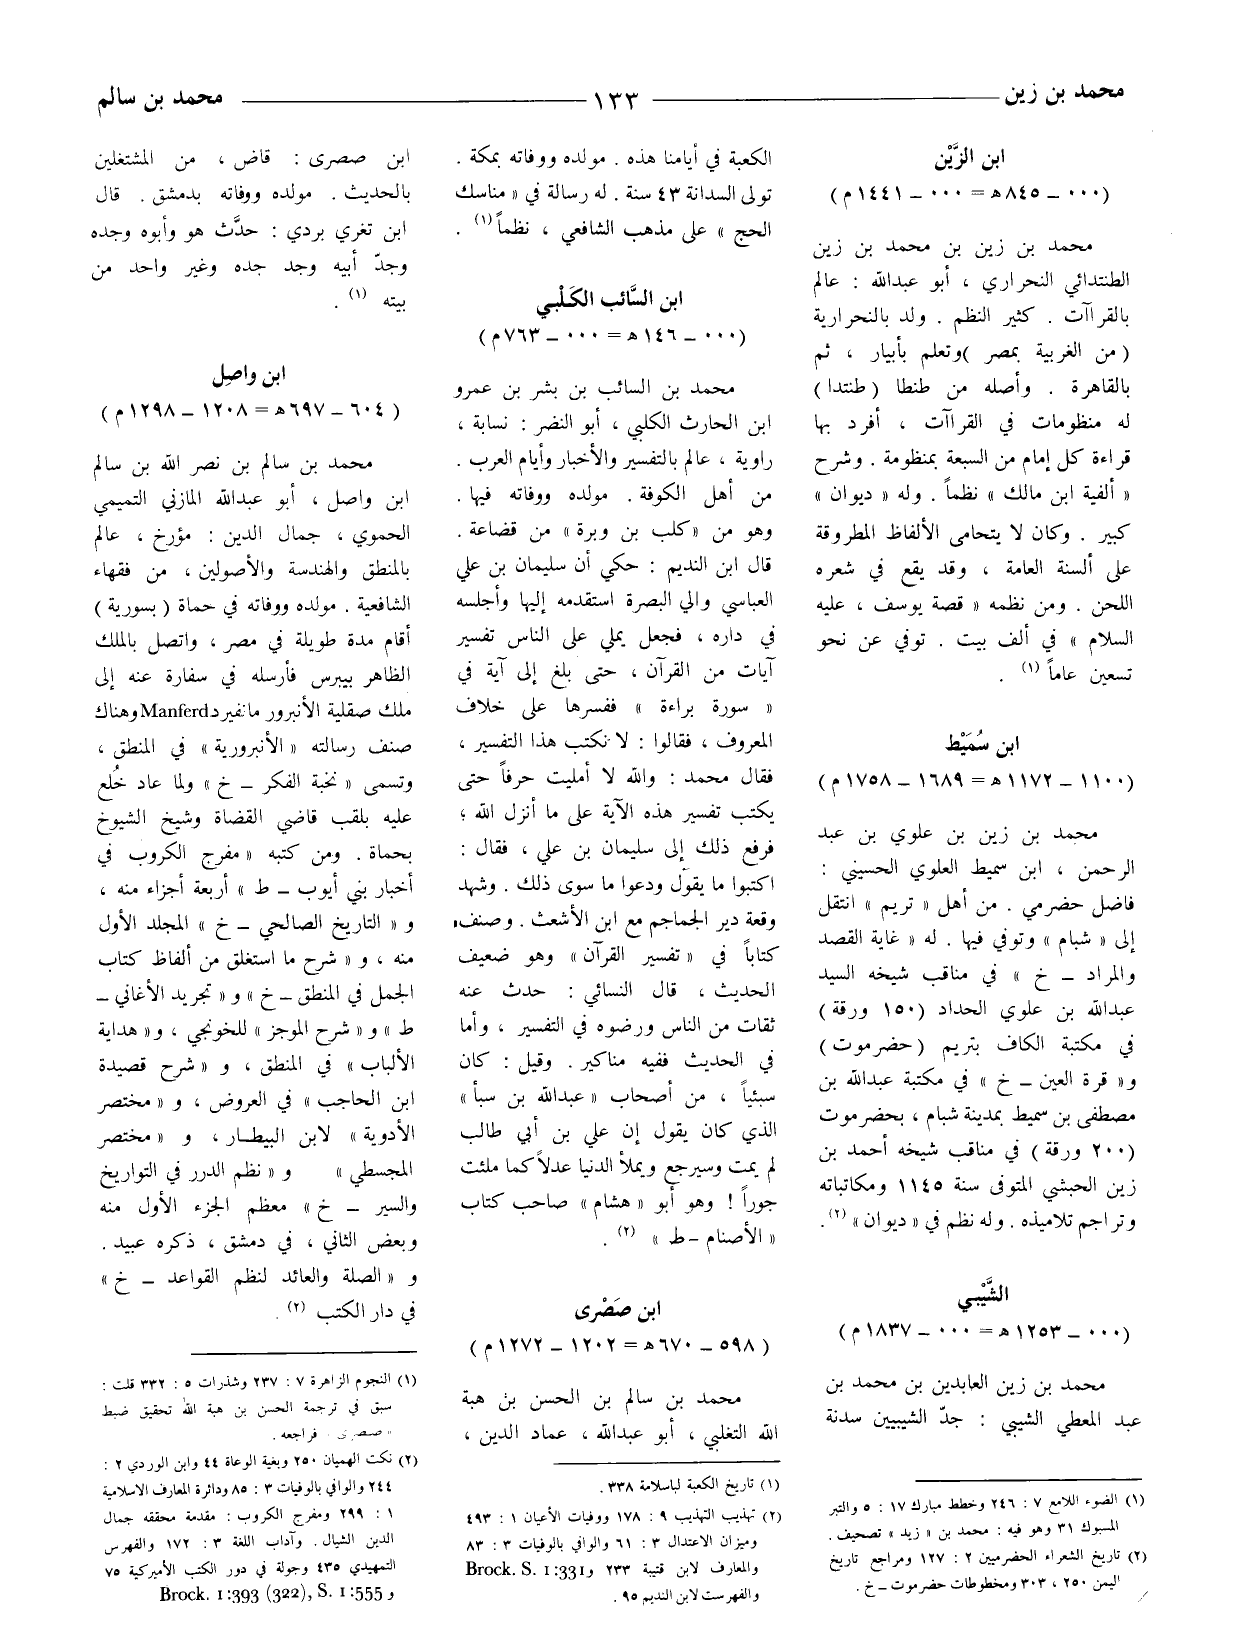 محمد بن زين
١٣٣
محمد بن سالم
ابن الزَّيْن
(٠٠٠ ــ ٨٤٥ هـ = ٠٠٠ ــ ١٤٤١ م)
محمد بن زين بن محمد بن زين
الطنتدائي النحراري ، أبو عبدالله : عالم
بالقراآت . كثير النظم . ولد بالنحرارية
(من الغربية بمصر )وتعلم بأبيار ، ثم
بالقاهرة . وأصله من طنطا (طنتدا)
له منظومات في القراآت ، أفرد بها
قراءة كل إمام من السبعة بمنظومة . وشرح
« ألفية ابن مالك » نظماً . وله « ديوان »
كبير . وكان لا يتحامى الألفاظ المطروقة
على ألسنة العامة ، وقد يقع في شعره
اللحن . ومن نظمه « قصة يوسف ، عليه
السلام » في ألف بيت . توفي عن نحو
تسعين عاماً (١) .
ابن سُمَيْط
(١١٠٠ ــ ١١٧٢ هـ = ١٦٨٩ ــ ١٧٥٨ م)
محمد بن زين بن علوي بن عبد
الرحمن ، ابن سميط العلوي الحسيني :
فاضل حضرمي . من أهل « تريم » انتقل
إلى « شبام » وتوفي فيها . له « غاية القصد
والمراد ــ خ » في مناقب شيخه السيد
عبدالله بن علوي الحداد (١٥٠ ورقة)
في مكتبة الكاف بتريم (حضرموت)
و« قرة العين ــ خ » في مكتبة عبدالله بن
مصطفى بن سميط بمدينة شبام ، بحضرموت
(٢٠٠ ورقة) في مناقب شيخه أحمد بن
زين الحبشي المتوفى سنة ١١٤٥ ومكاتباته
وتراجم تلاميذه . وله نظم في « ديوان » (٢).
الشَّيْبي
(٠٠٠ ــ ١٢٥٣ هـ = ٠٠٠ ــ ١٨٣٧ م)
محمد بن زين العابدين بن محمد بن
عبد المعطي الشيبي : جدّ الشيبيين سدنة
(١) الضوء اللامع ٧ : ٢٤٦ وخطط مبارك ١٧ : ٥ والتبر
المسبوك ٣١ وهو فيه : محمد بن « زيد » تصحيف .
(٢) تاريخ الشعراء الحضرميين ٢ : ١٢٧ ومراجع تاريخ
اليمن ٢٥٠ ، ٣٠٣ ومخطوطات حضرموت ــ خ .
الكعبة في أيامنا هذه . مولده ووفاته بمكة .
تولى السدانة ٤٣ سنة . له رسالة في « مناسك
الحج » على مذهب الشافعي ، نظماً(١) .
ابن السَّائب الكَلْبي
(٠٠٠ ــ ١٤٦ هـ = ٠٠٠ ــ ٧٦٣م)
محمد بن السائب بن بشر بن عمرو
ابن الحارث الكلبي ، أبو النضر : نسابة ،
راوية ، عالم بالتفسير والأخبار وأيام العرب .
من أهل الكوفة . مولده ووفاته فيها .
وهو من « كلب بن وبرة » من قضاعة .
قال ابن النديم : حكي أن سليمان بن علي
العباسي والي البصرة استقدمه إليها وأجلسه
في داره ، فجعل يملي على الناس تفسير
آيات من القرآن ، حتى بلغ إلى آية في
« سورة براءة » ففسرها على خلاف
المعروف ، فقالوا : لا نكتب هذا التفسير ،
فقال محمد : والله لا أمليت حرفاً حتى
يكتب تفسير هذه الآية على ما أنزل الله ؛
فرفع ذلك إلى سليمان بن علي ، فقال :
اكتبوا ما يقول ودعوا ما سوى ذلك . وشهد
وقعة دير الجماجم مع ابن الأشعث . وصنف
كتاباً في « تفسير القرآن » وهو ضعيف
الحديث ، قال النسائي : حدث عنه
ثقات من الناس ورضوه في التفسير ، وأما
في الحديث ففيه مناكير . وقيل : كان
سبئياً ، من أصحاب « عبدالله بن سبأ »
الذي كان يقول إن علي بن أبي طالب
لم يمت وسيرجع ويملأ الدنيا عدلاً كما ملئت
جوراً ! وهو أبو « هشام » صاحب كتاب
« الأصنام ــ ط » (٢) .
ابن صَصْرى
(٥٩٨ ــ ٦٧٠هـ = ١٢٠٢ ــ ١٢٧٢م)
محمد بن سالم بن الحسن بن هبة
الله التغلبي ، أبو عبدالله ، عماد الدين ،
(١) تاريخ الكعبة لباسلامة ٣٣٨ .
(٢) تهذيب التهذيب ٩ : ١٧٨ ووفيات الأعيان ١ : ٤٩٣
وميزان الاعتدال ٣ : ٦١ والوافي بالوفيات ٣ : ٨٣
والمعارف لابن قتيبة ٢٣٣ و Brock. S. 1:331
والفهرست لابن النديم ٩٥ .
ابن صصرى : قاض ، من المشتغلين
بالحديث . مولده ووفاته بدمشق . قال
ابن تغري بردي : حدَّث هو وأبوه وجده
وجدّ أبيه وجد جده وغير واحد من
بيته (١) .
ابن واصِل
(٦٠٤ ــ ٦٩٧هـ = ١٢٠٨ ــ ١٢٩٨ م)
محمد بن سالم بن نصر الله بن سالم
ابن واصل ، أبو عبدالله المازني التميمي
الحموي ، جمال الدين : مؤرخ ، عالم
بالمنطق والهندسة والأصولين ، من فقهاء
الشافعية . مولده ووفاته في حماة (بسورية)
أقام مدة طويلة في مصر ، واتصل بالملك
الظاهر بيبرس فأرسله في سفارة عنه إلى
ملك صقلية الأنبرور مانفيرد Manferd وهناك
صنف رسالته « الأنبرورية » في المنطق ،
وتسمى « نخبة الفكر ــ خ » ولما عاد خُلع
عليه بلقب قاضي القضاة وشيخ الشيوخ
بحماة . ومن كتبه « مفرج الكروب في
أخبار بني أيوب ــ ط » أربعة أجزاء منه ،
و « التاريخ الصالحي ــ خ » المجلد الأول
منه ، و « شرح ما استغلق من ألفاظ كتاب
الجمل في المنطق ــ خ » و « تجريد الأغاني ــ
ط » و « شرح الموجز » للخونجي ، و« هداية
الألباب » في المنطق ، و « شرح قصيدة
ابن الحاجب » في العروض ، و « مختصر
الأدوية » لابن البيطار ، و « مختصر
المجسطي » و « نظم الدرر في التواريخ
والسير ــ خ » معظم الجزء الأول منه
وبعض الثاني ، في دمشق ، ذكره عبيد .
و « الصلة والعائد لنظم القواعد ــ خ »
في دار الكتب (٢) .
(١) النجوم الزاهرة ٧ : ٢٣٧ وشذرات ٥ : ٣٣٢ قلت :
سبق في ترجمة الحسن بن هبة الله تحقيق ضبط
« صصرى » فراجعه .
(٢) نكت الهميان ٢٥٠ وبغية الوعاة ٤٤ وابن الوردي ٢ :
٢٤٤ والوافي بالوفيات ٣ : ٨٥ ودائرة المعارف الاسلامية
١ : ٢٩٩ ومفرج الكروب : مقدمة محققه جمال
الدين الشيال . وآداب اللغة ٣ : ١٧٢ والفهرس
التمهيدي ٤٣٥ وجولة في دور الكتب الأميركية ٧٥
و Brock. 1:393 (322), S. 1:555